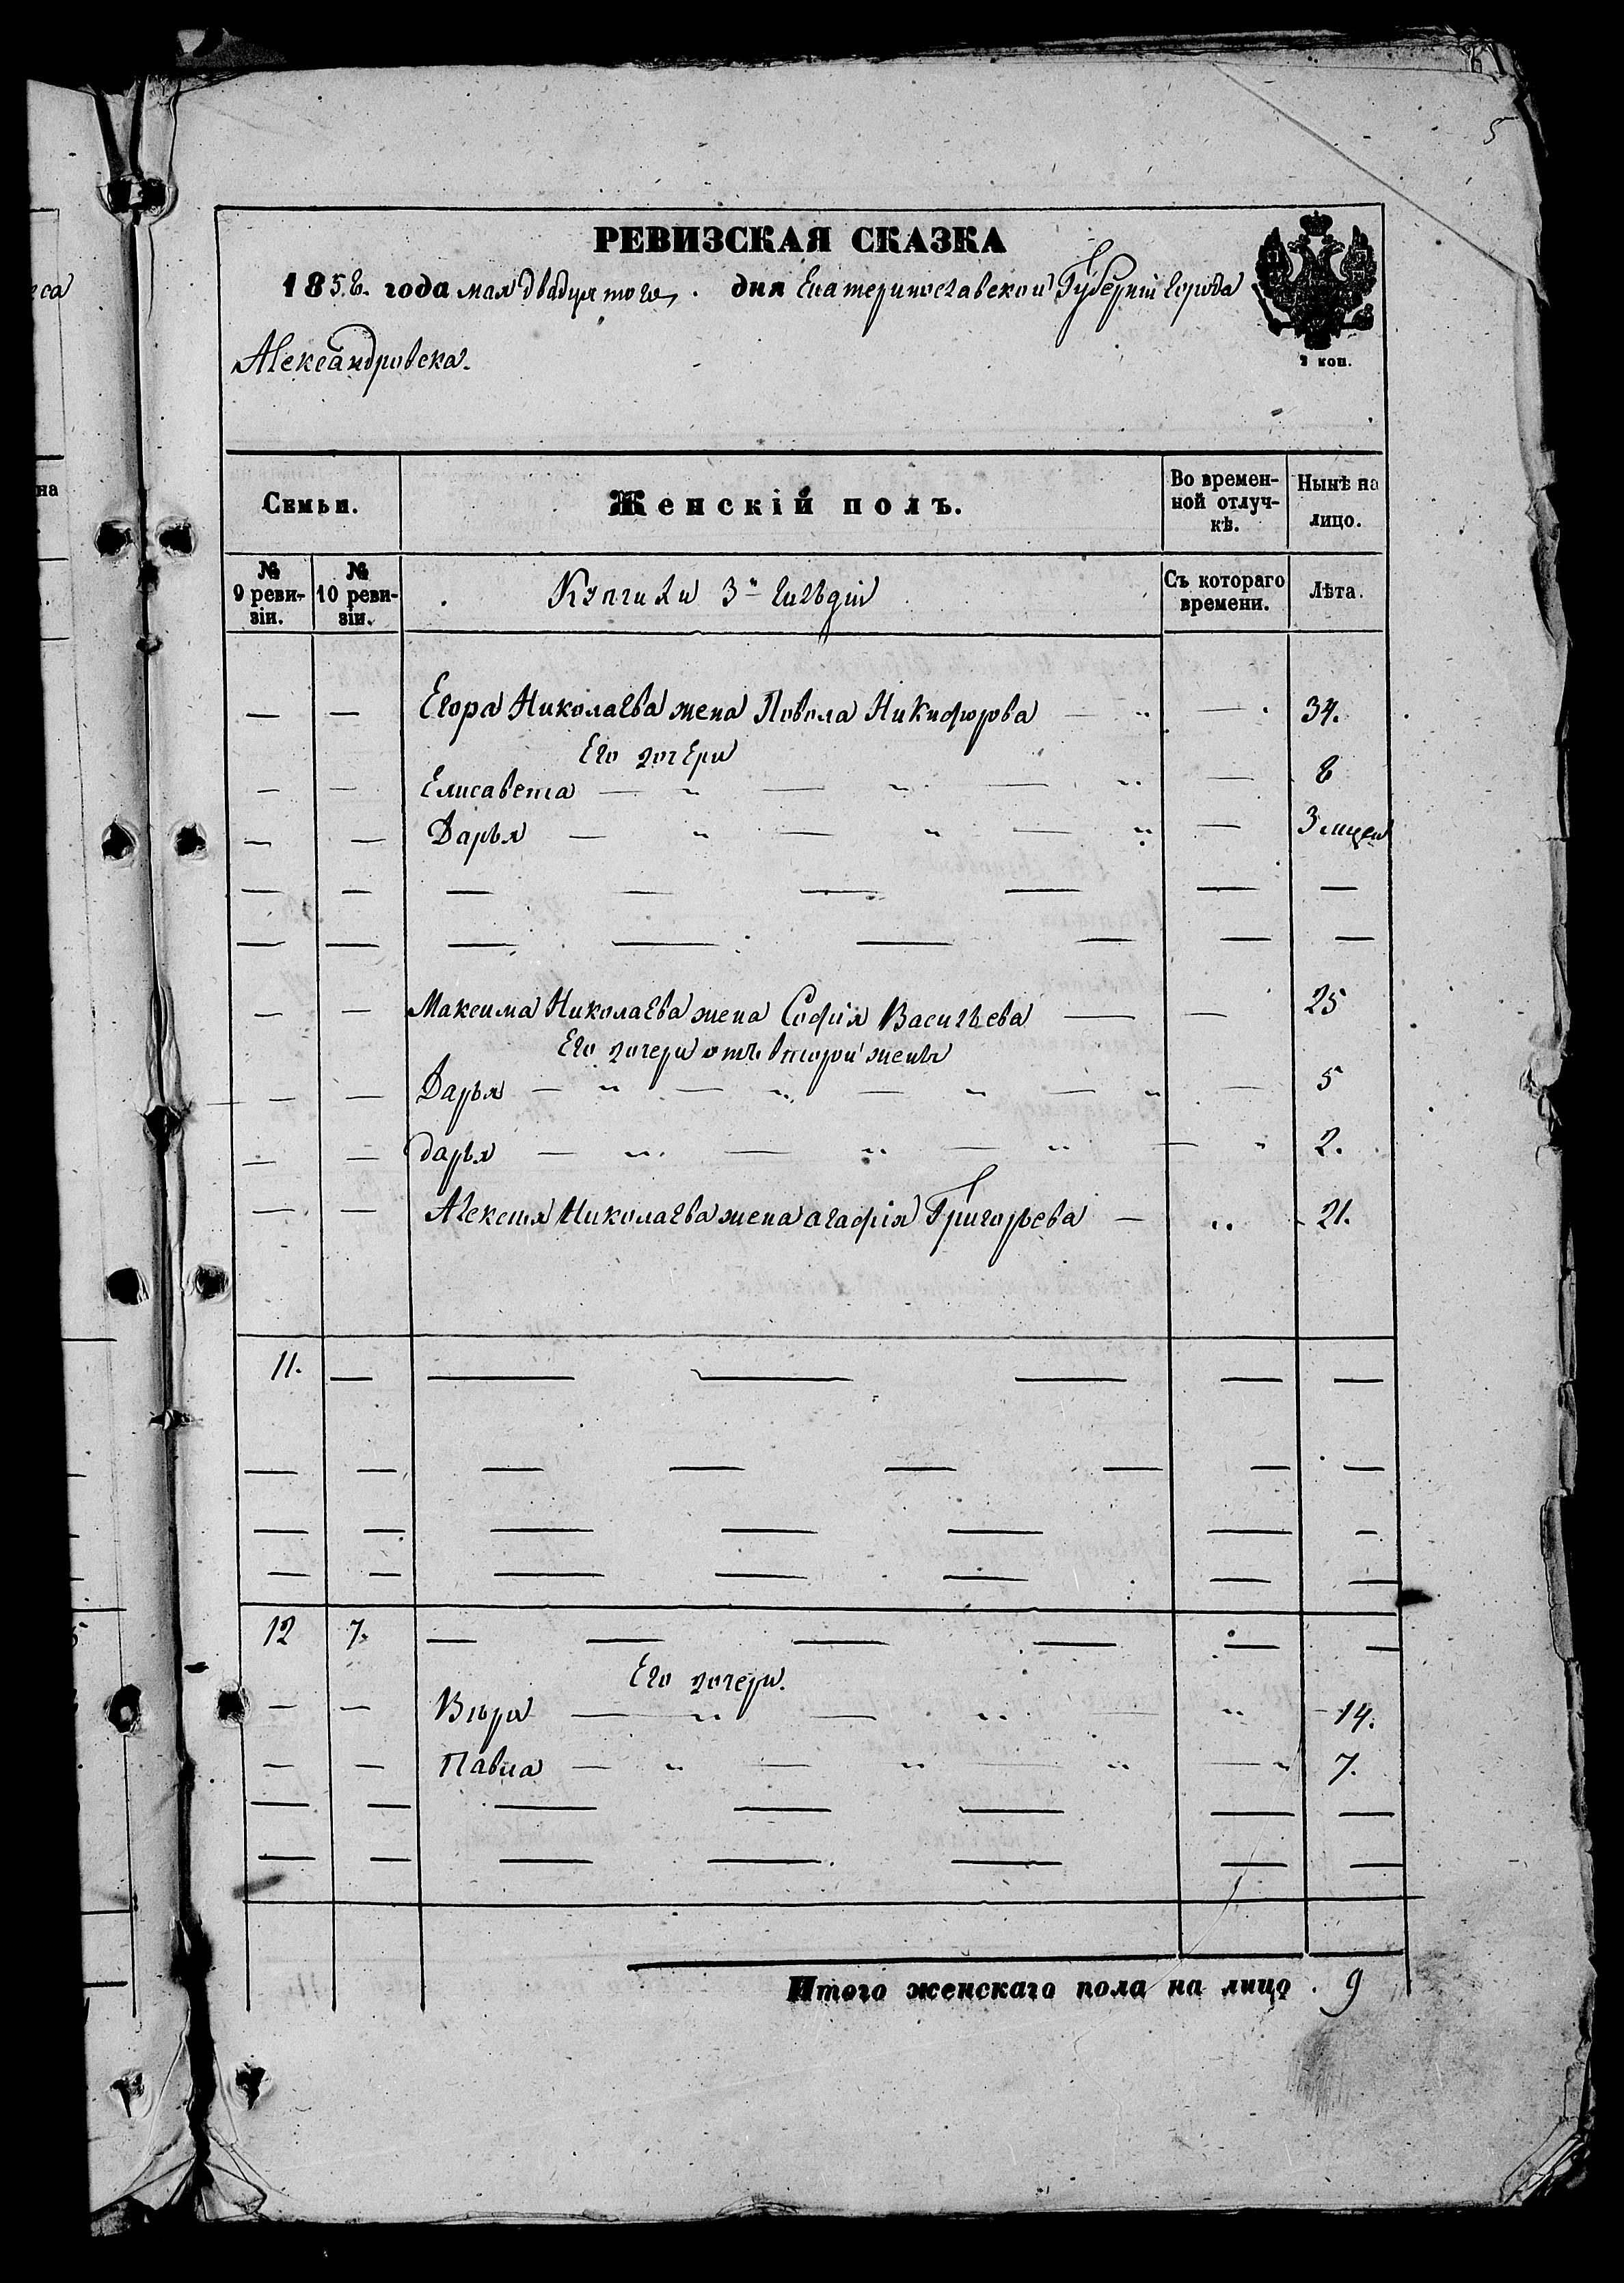 5
РЕВИЗСКАЯ СКАЗКА
1858. года мая двадцятого. дня Екатеринославской Губерніи города
Александровска.
2 коп.
Семьи.
Женскій полъ.
Во времен-
ной отлуч-
кѣ.
Нынѣ на
лицо.
№
9 реви-
зіи.
№
10 реви-
зіи.
Купчихи 3й гильдіи
Съ котораго
времени.
Лѣта.
— — Егора Николаева жена Никифорова — " — 34.
Его дочери
— — Елисавета — " — " — " — 8
— — Дарья — " — " — " — 3 мцеи
— — Максима Николаева жена Софія Васильева — — 25
Его дочери отъ второй жены
— — Дарья — " — " — " — " — 5
— — Дарья — " — " — " — " 2.
— — Алексѣя Николаева жена агафія Григорьева — " 21.
11. —
12 7.
Его дочери.
— — Вѣра — " — " — " 14.
— — Павла — " — " — " — " 7.
Итого женскаго пола на лицо . 9
са
на